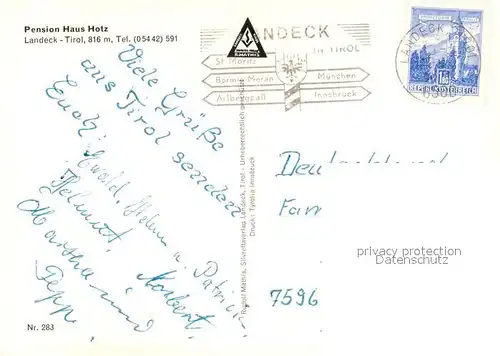 Pension Haus Hotz
Landeck - Tirol, 816 m, Tel. (05442) 591
R.MATHIS
LANDECK
IN TIROL
St. Moritz
Bormio Meran
München
Arlbergpaß
Innsbruck
LANDECK
6500
REPUBLIK ÖSTERREICH
Viele Grüße
aus Tirol senden
Euch
Ewald, Helm u. Patricia
Helmut, Norbert,
Martha und
Sepp.
Rudolf Mathis, Silvrettaverlag Landeck, Tirol - Urheberrechtlich geschützt
Druck: Tyrolia Innsbruck
Fam
privacy protection
watermark
7596
Nr. 283